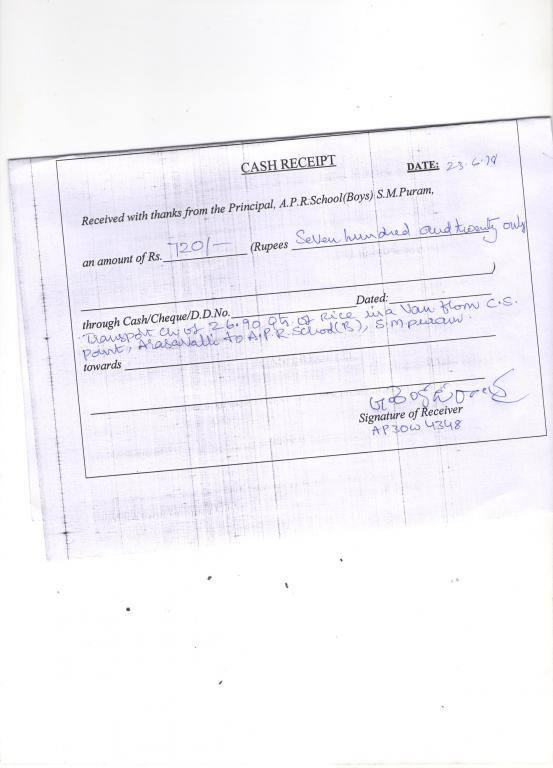 CASH RECEIPT
DATE: 23-6-
Received with thanks from the Principal, A.P.R.School(Boys) S.M.Puram,
an amount of Rs. 720/- (Rupees Seven hundred and twenty only
)
through Cash/Cheque/D.D.No. Dated:
Transport Ch of 26.90 Qtl. of Rice in a Van from C.S.
point, Arasavalli to A.P.R.School(B), S.M puram.
towards
Signature of Receiver
AP30W 4348